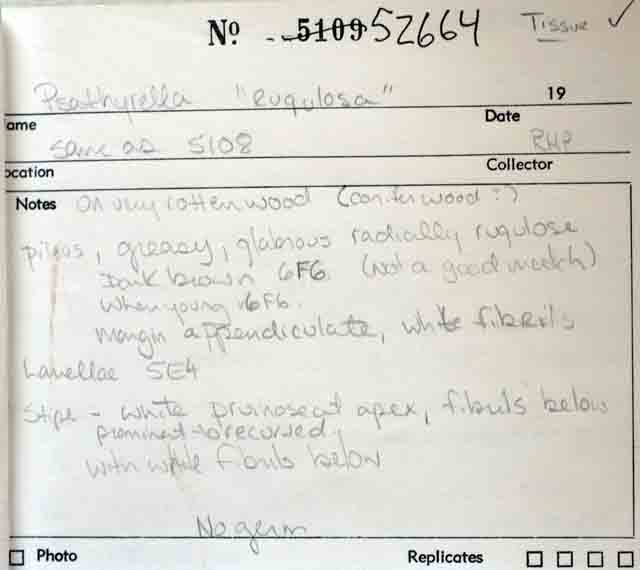 Nº 5109 52664 Tissue ✓
Psathyrella "rugulosa" 19
ame Date
same as 5108 RHP
ocation Collector
Notes On very rotten wood (conifer wood?)
pileus, greasy, glabrous radially rugulose
Dark brown 6F6 (not a good match)
when young 6F6.
margin appendiculate, white fibrils
Lamellae 5E4
Stipe - white pruinose at apex, fibrils below
prominent recurved.
with white fibrils below
No germ
Photo Replicates